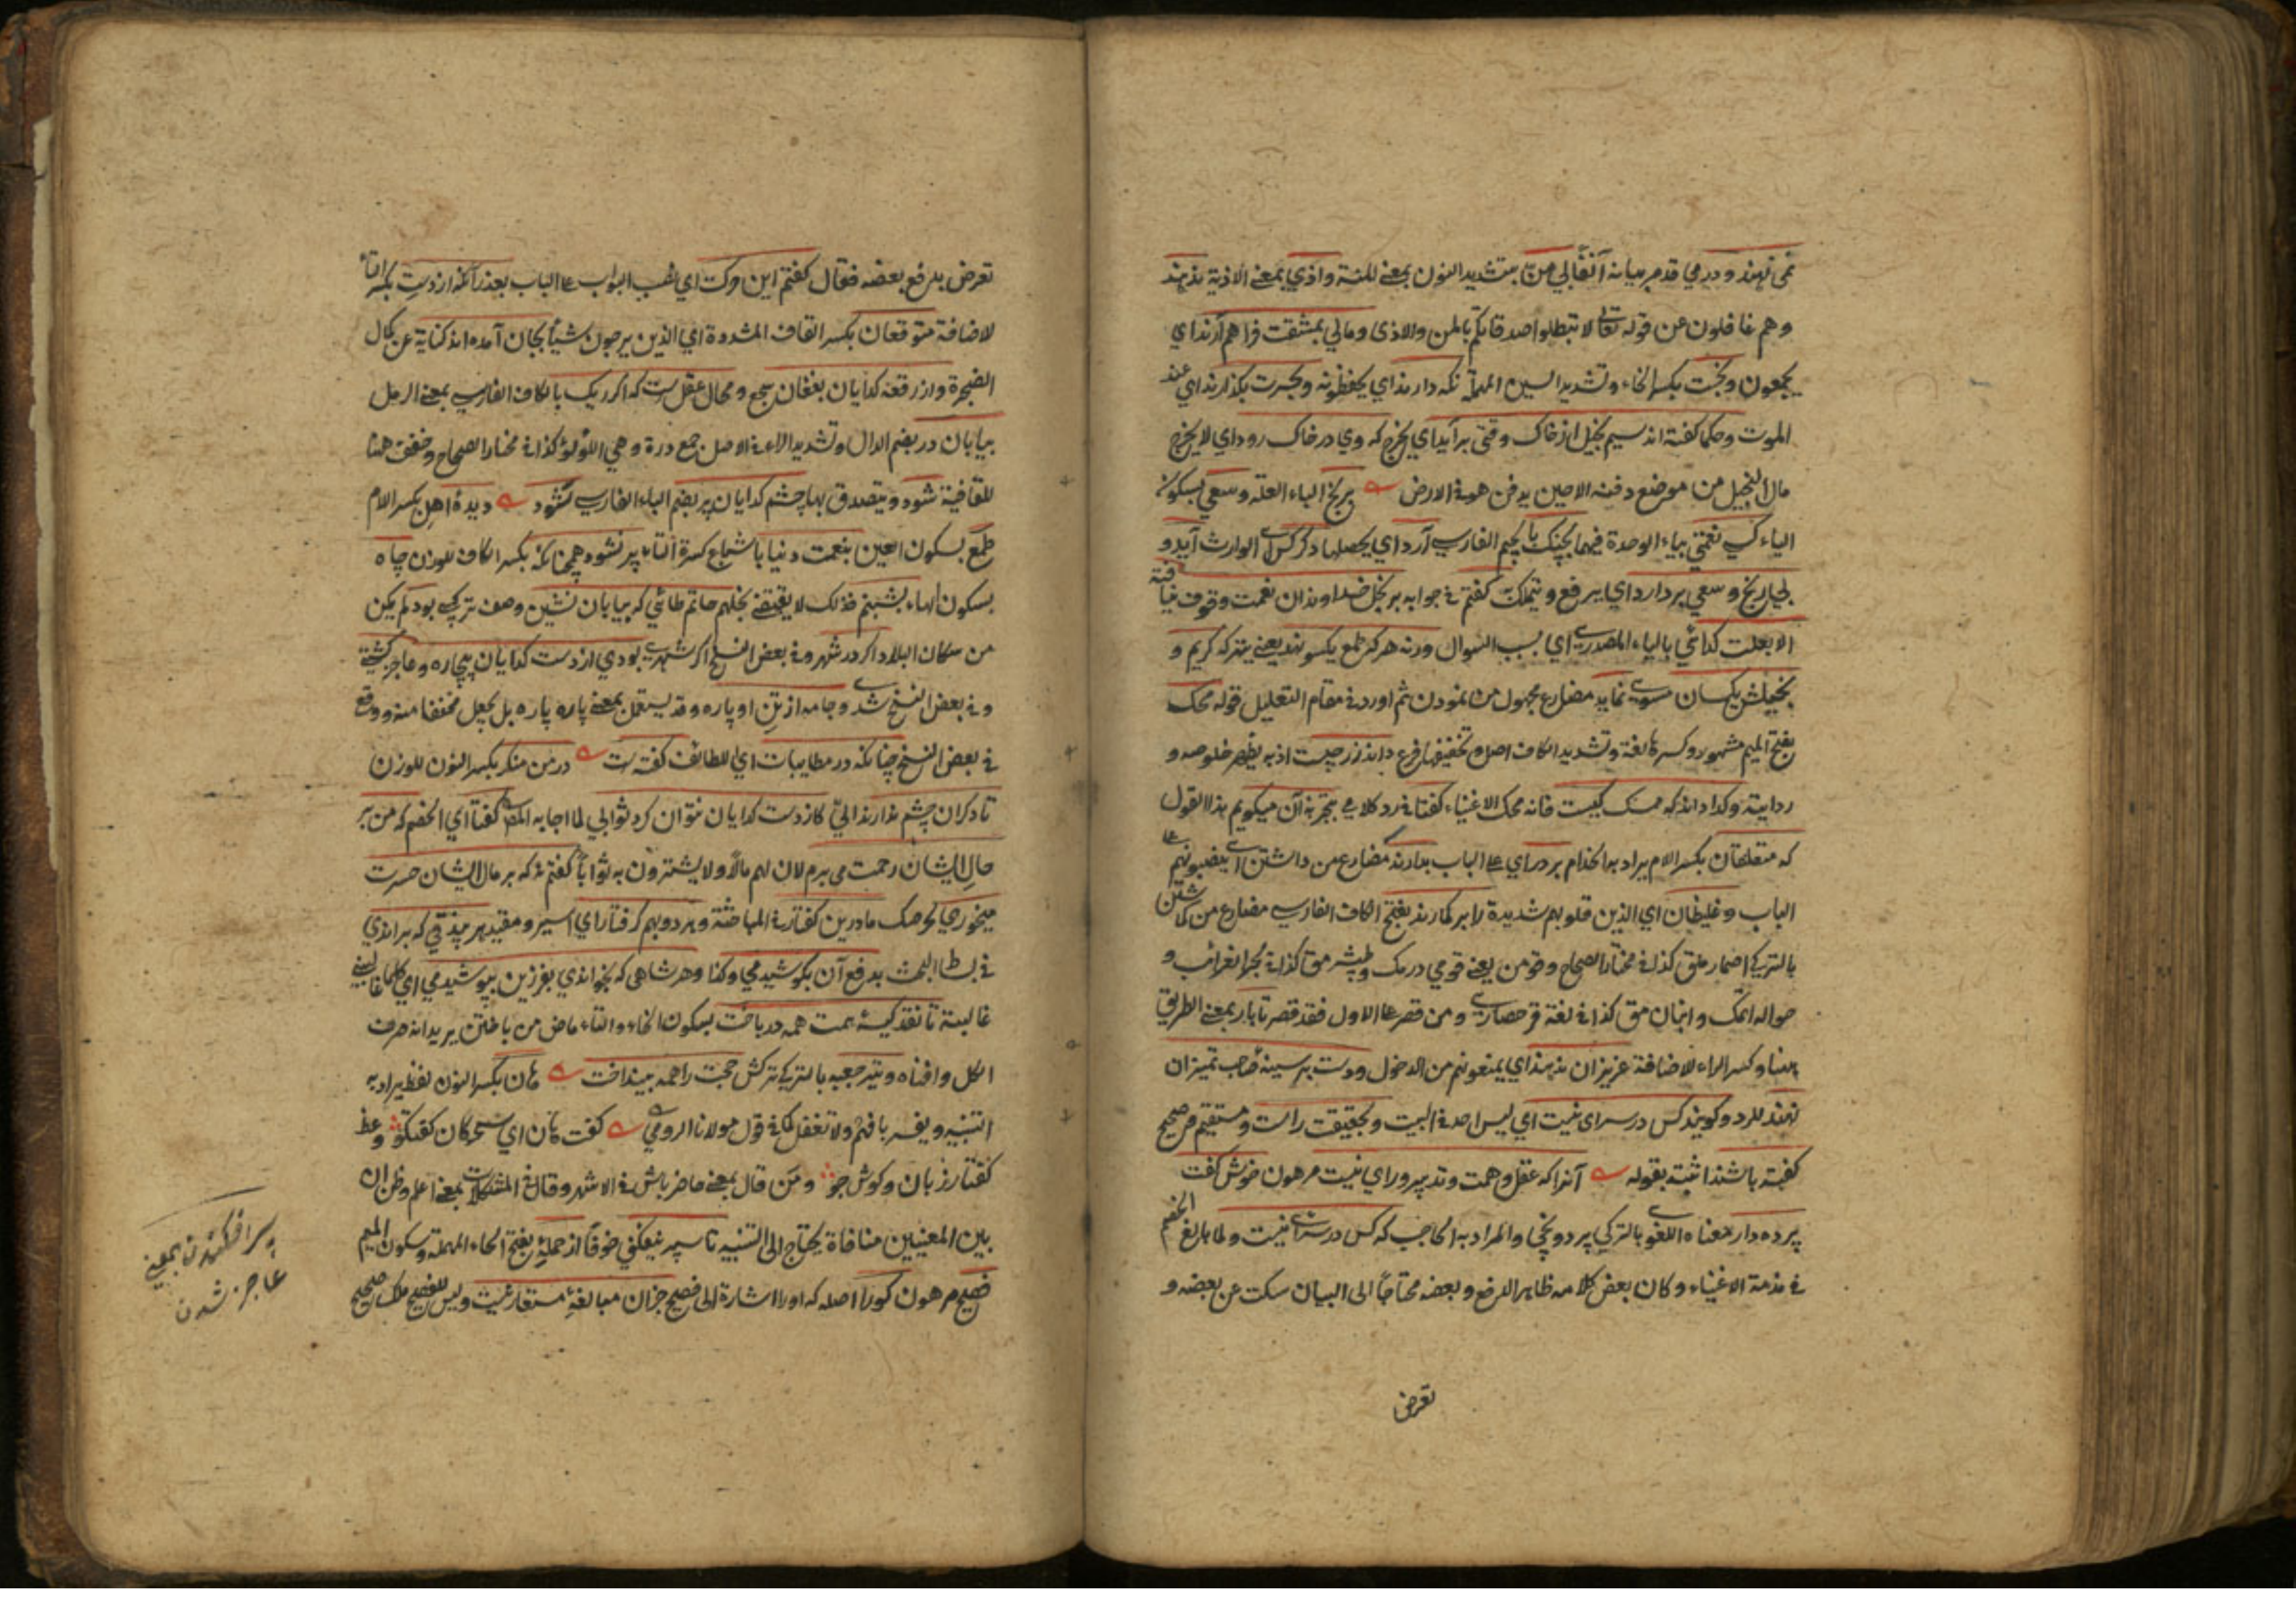 نمى نهند و درمي قدم بر ميانه آنفًا لي منّ بتشديد النون بمعنى للمنة واذي بمعنى الاذية ندهند
وهم غافلون عن قوله تعالى لا تبطلوا صدقاتكم بالمن والاذى ومالي بمشقت فراهم آرند اي
يجمعون وبخست بكسر الخاء وتشديد السين المهملة نكه دارند اي يحفظونه وبحسرت بكذارند اي عند
الموت وحكما كفته اند سيم بخيل از خاك وقتى برآيد اي يخرج كه وي در خاك رود اي لا يخرج
مال البخيل من موضع دفنه الا حين يدفن هو في الارض برنج الباء العلة وسعي بسكون
الياء كسي نعمتي بياء الوحدة فيهما بچنك بالجيم الفارسي آرد اي يحصلها دكر كس اى الوارث آيد و
بي رنج وسعي بردارد اي يرفع ويتملك كفتم في جوابه بر بخل خداوندان نعمت وقوف نيافتة
الا بعلت كدائي بالياء المصدرية اي بسبب السوال ورنه هركه طمع يكسو نهد يعني يترك كريم و
بخيلش يكسان مسوى نمايد مضارع مجهول من نمودن ثم اورد في مقام التعليل قوله محك
بفتح الميم مشهور وكسرها لغة وتشديد الكاف اصل وتخفيفها فرع داند زر چيست اذ به يظهر خلوصه و
ردايته وكدا داند كه ممسك كيست فانه محك الاغنياء كفتا في رد كلامي بتجربه آن ميكويم هذا القول
كه متعلقان بكسر اللام يراد به الخدام بر در اي على الباب بدارند مضارع من داشتن اى ينصبونهم على
الباب وغليظان اي الذين قلوبهم شديدة را بر كمارند بفتح الكاف الفارسي مضارع من كماشتن
بالتركي اصمارلمق كذا في مختار الصحاح وقومن يعني قومي ديرمك وطپشرمق كذا في بحر الغرائب و
حواله اتمك و اينانمق كذا في لغة قره حصاري ومن قصر على الاول فقد قصر تا بار بمعنى الطريق
ههنا وكسر الراء للاضافة عزيزان ندهند اي يمنعونهم من الدخول ودست بر سينه صاحب تميزان
نهند للرد وكويند كس در سراى نيست اي ليس احد في البيت وبحقيقت راست ومستقيم وصحيح
كفته باشند اثبته بقوله آنرا كه عقل وهمت وتدبير وراي نيست مرهون خوش كفت
پرده دار معناه اللغوى بالتركي پرده وچي والمراد به الحاجب كه كس در سراى نيست ولما بالغ الخصم
في مذمة الاغنياء وكان بعض كلامه ظاهر الدفع وبعضه محتاجًا الى البيان سكت عن بعضه و
تعرض
تعرض بدفع بعضه فقال كفتم اين وكت اي غب الجواب على الباب بعذر آنكه از دست بكسر التاء
للاضافة متوقعان بكسر القاف المشددة اي الذين يرجون شيئًا بجان آمده اند كناية عن كمال
الضجرة واز رقعه كدايان بفغان سجع ومحال عقل ست كه اكر ريك بالكاف الفارسي بمعنى الرمل
بيابان در بضم الدال وتشديد الراء في الاصل جمع درة وهي اللؤلؤ كذا في مختار الصحاح وخفف هنا
للقافية شود ويتصدق بها چشم كدايان پر بضم الباء الفارسي نشود ديدهٔ اهل بكسر اللام
طمع بسكون العين بنعمت دنيا باشباع كسرة التاء پر نشود همچنانكه بكسر الكاف للوزن چاه
بسكون الهاء بشبنم فذلك لا يقتضي بخلهم حاتم طائي كه بيابان نشين وصف تركيبي بود لم يكن
من سكان البلاد اكر در شهر وفي بعض النسخ اكر شهرى بودي از دست كدايان بيچاره وعاجز كشتي
وفي بعض النسخ شدى وجامه از تن او پاره وقد يستعمل بمعنى پاره پاره بل يجعل مخففا منه ووقع
في بعض النسخ چنانكه در مطايبات اي اللطائف كفته ست در من منكر بكسر النون للوزن
تا دكران چشم ندارند اليّ كز دست كدايان نتوان كرد ثوابي لما اجابه المصنف كفتا اي الخصم كه من بر
حال ايشان رحمت مى برم لان لهم مالاً ولا يشترون به ثوابًا كفتم نه كه بر مال ايشان حسرت
ميخوري لحرصك ما درين كفتار في المباحثة وهر دو بهم كرفتار اي اسير ومقيد هر بيذقي كه براندي
في بساط البحث بدفع آن بكوشيدمي وكذا وهر شاهى كه بخواندي بفرزين بپوشيدمي اي كلما غالبني
غالبته تا نقد كيسهٔ همت همه درباخت بسكون الخاء والتاء ماض من باختن يريد انه صرف
الكل وافناه وتير جعبه بالتركي تركش حجت را همه بينداخت هان بكسر النون لفظ يراد به
التنبيه ويفسر بافهم ولا تغفل كما في قول مولانا الرومي كفت هان اي سخركان كفتكو وعظ
كفتار زبان وكوش جو ومن قال بمعنى حاضر باش في الاشهر وقال في المشكلات بمعنى اعلم وظن ان
بين المعنيين منافاة يحتاج الى التنبيه تا سپر نيفكني خوفًا از حملهٔ بفتح الحاء المهملة وسكون الميم
فصيح مرهون كورا اصله كه اورا اشارة الى فصيح جزان مبالغهٔ مستعار نيست وليس للفصيح ملك صحيح
سپر افكندن بمعنى
عاجز شدن